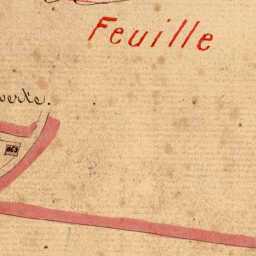 Feuille
verte.